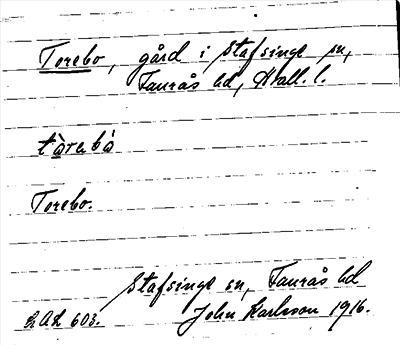 Torebo, gård i Stafsinge sn,
Faurås hd, Hall. l.
tòrabò
Torebo.
Stafsinge sn, Faurås hd
John Karlsson 1916.